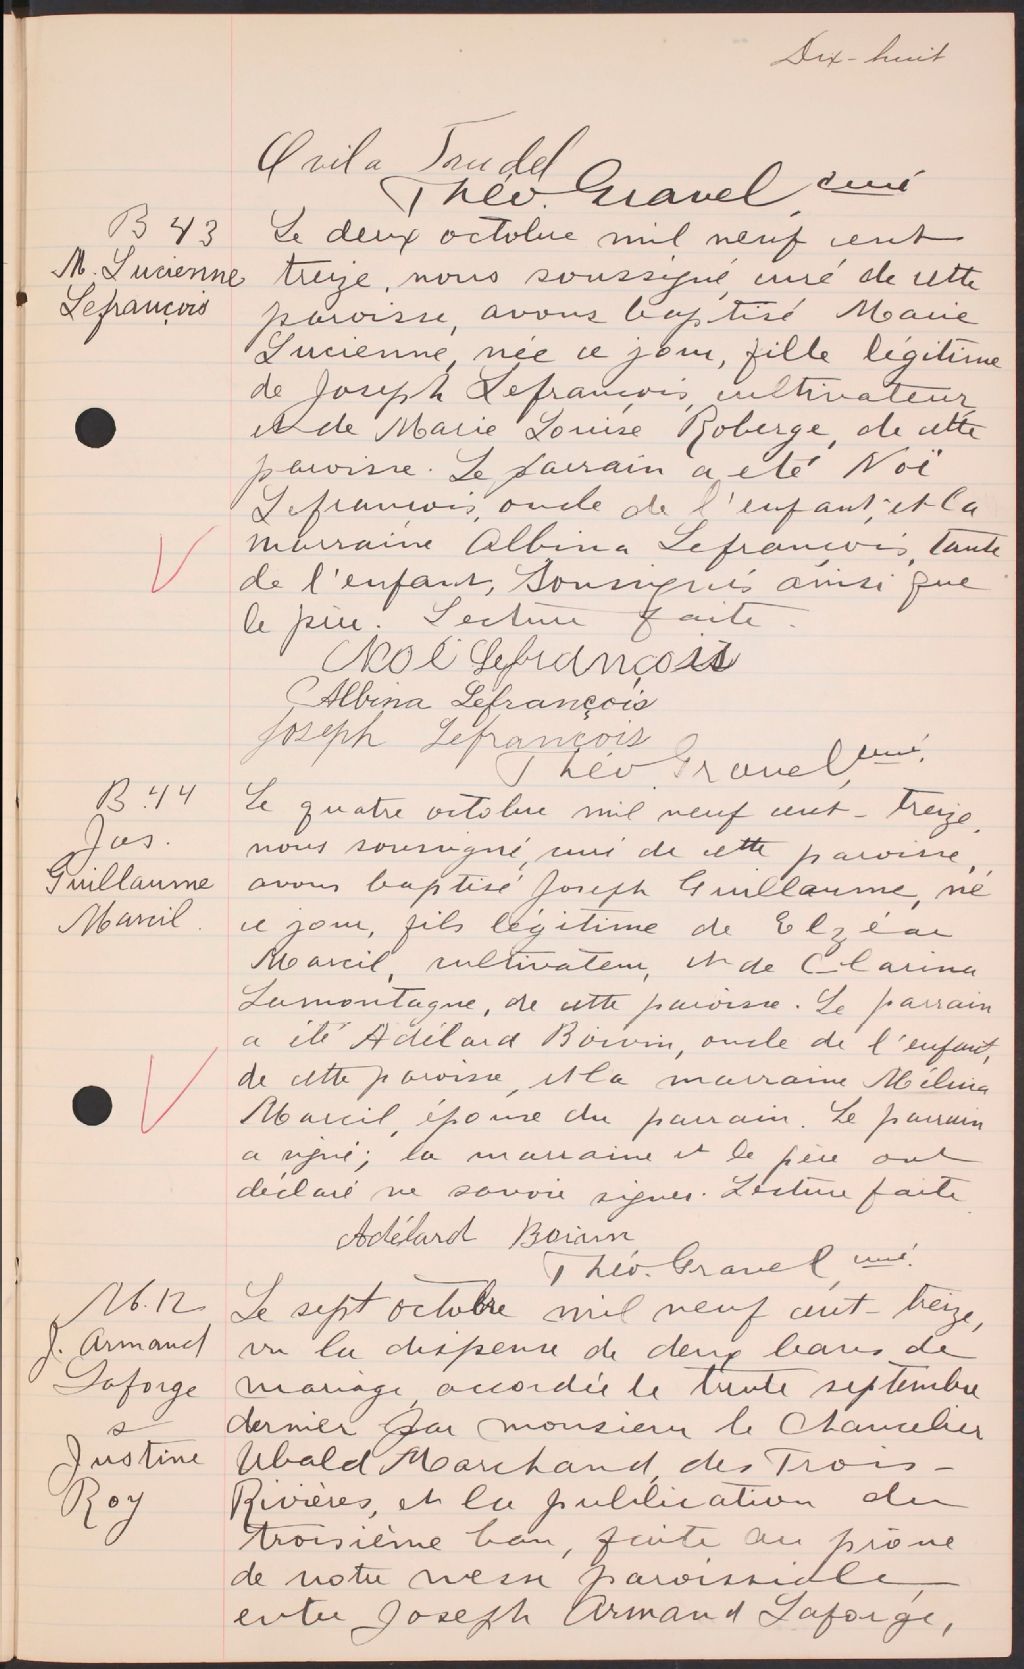 Dix-huit
Ovila Trudel
Théo. Gravel, curé
B 43
M. Lucienne
Lefrançois
Le deux octobre mil neuf cent
treize, nous soussigné, curé de cette
paroisse, avons baptisé Marie
Lucienne, née ce jour, fille légitime
de Joseph Lefrançois, cultivateur,
et de Marie Louise Roberge, de cette
paroisse. Le parrain a été Noë
Lefrançois, oncle de l'enfant, et la
marraine Albina Lefrançois, tante
de l'enfant, soussignés ainsi que
le père. Lecture faite.
Noë Lefrançois
Albina Lefrançois
Joseph Lefrançois
Théo Gravel, curé.
B. 44
Jos.
Guillaume
Marcil.
Le quatre octobre mil neuf cent-treize,
nous soussigné, curé de cette paroisse,
avons baptisé Joseph Guillaume, né
ce jour, fils légitime de Elzéar
Marcil, cultivateur, et de Clarina
Lamontagne, de cette paroisse. Le parrain
a été Adélard Boivin, oncle de l'enfant,
de cette paroisse, et la marraine Mélina
Marcil, épouse du parrain. Le parrain
a signé; la marraine et le père ont
déclaré ne savoir signer. Lecture faite
Adélard Boivin
Théo. Gravel, curé.
M. 12
J. Armand
Laforge
&
Justine
Roy
Le sept octobre mil neuf cent-treize,
vu la dispense de deux bans de
mariage, accordée le trente septembre
dernier par monsieur le Chancelier
Ubald Marchand, des Trois-
Rivières, et la publication du
troisième ban, faite au prône
de notre messe paroissiale
entre Joseph Armand Laforge,